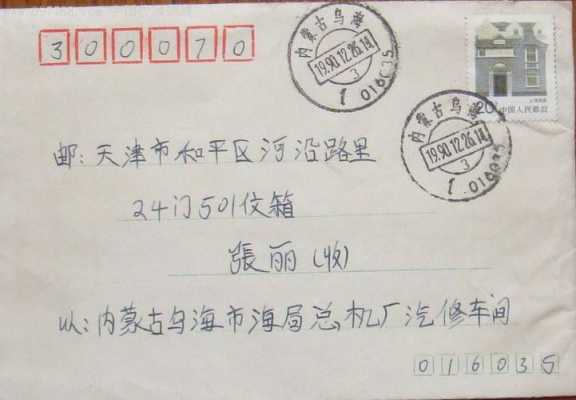 300070
内蒙古乌海
1990.12.26.14
3
1 016035
20分 中国人民邮政
内蒙古乌海
1990.12.26.14
3
1 016035
邮:天津市和平区河沿路里
24门501信箱
張丽(收)
从:内蒙古乌海市海局总机厂汽修车间
016035